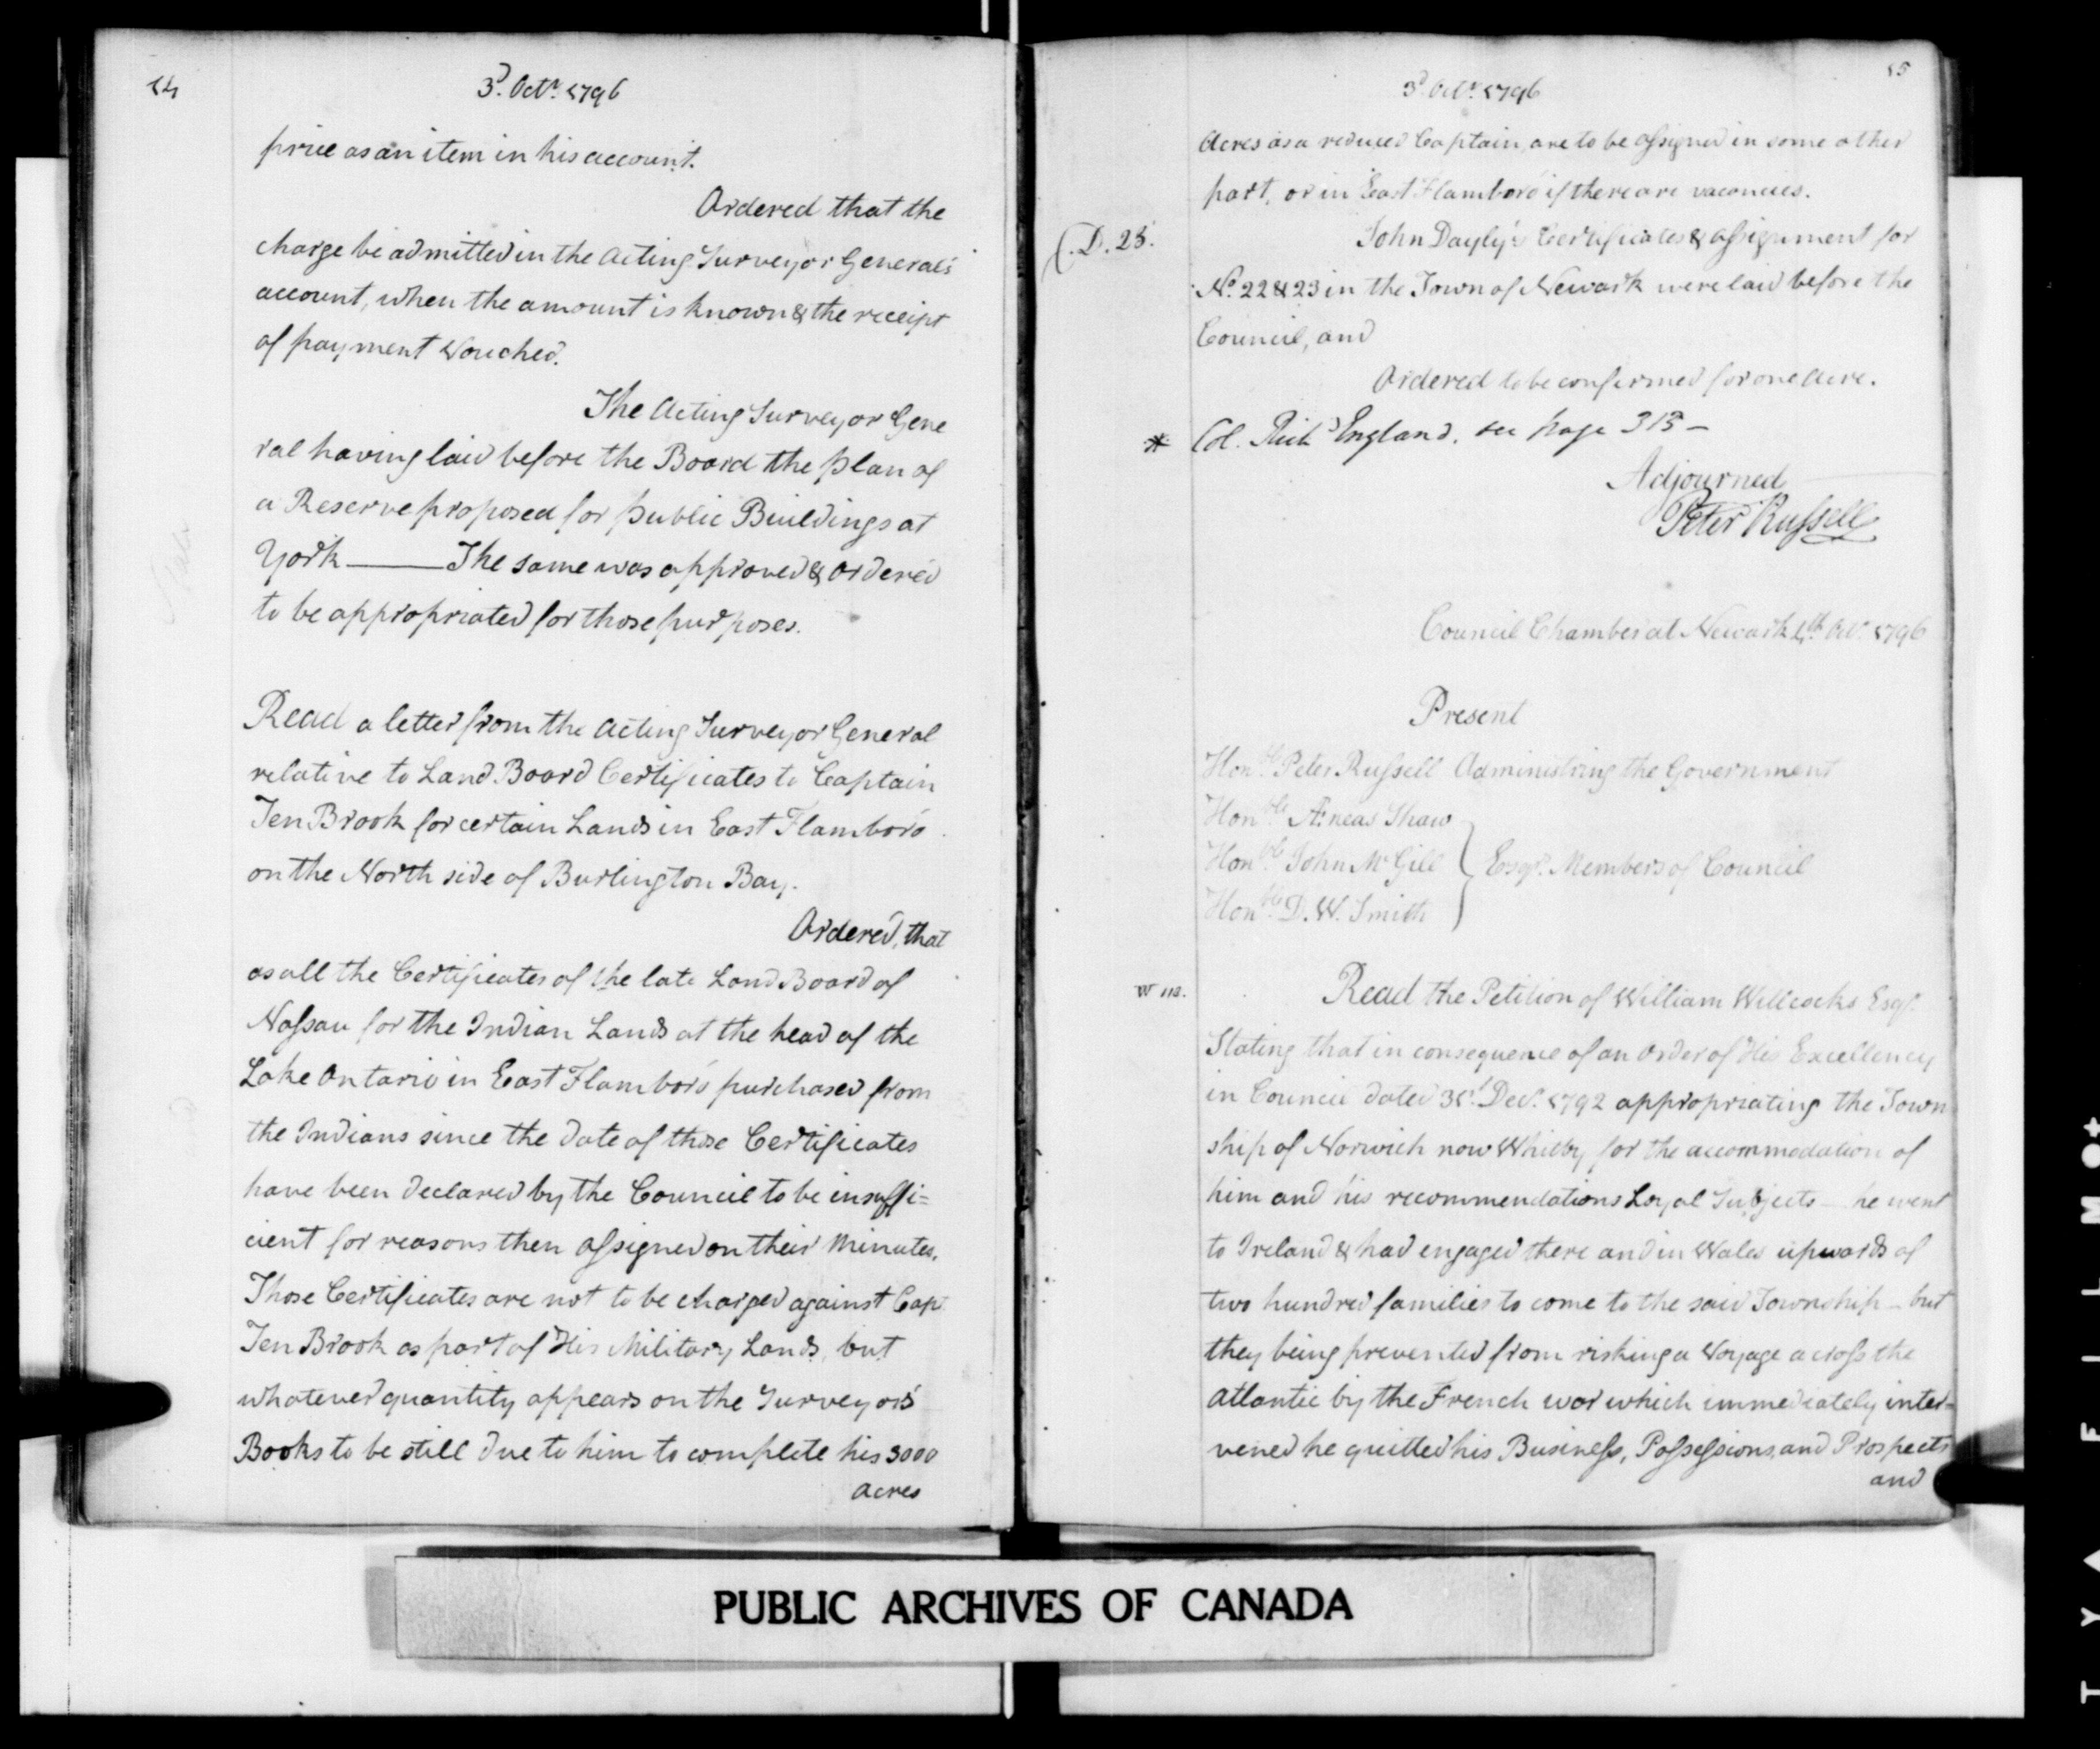 14
3d. Octr. 1796
price as an item in his account.
Ordered that the
charge be admitted in the Acting Surveyor General's
account, when the amount is known & the receipt
of payment vouched.
The Acting Surveyor Gene
ral having laid before the Board the plan of
a Reserve proposed for public Buildings at
York — The same was approved & ordered
to be appropriated for those purposes.
Read a letter from the Acting Surveyor General
relative to Land Board Certificates to Captain
Ten Brook for certain Lands in East Flamboro'
on the North side of Burlington Bay.
Ordered, that
as all the Certificates of the late Land Board of
Nassau for the Indian Lands at the head of the
Lake Ontario in East Flamboro' purchased from
the Indians since the date of those Certificates
have been declared by the Council to be insuffi=
cient for reasons then assigned on their Minutes,
Those Certificates are not to be charged against Capt
Ten Brook as part of His Military Lands, but
whatever quantity appears on the Surveyor's
Books to be still due to him to complete his 3000
acres
15
3d. Octr. 1796
Acres as a reduced Captain, are to be assigned in some other
part, or in East Flamboro' if there are vacancies.
D. 23.
John Dayly's Certificates & assignment for
No. 22 & 23 in the Town of Newark were laid before the
Council, and
Ordered to be confirmed for one Acre.
* Col. Richd England. see page 313 —
Adjourned
Peter Russell
Council Chamber at Newark 4th Octr. 1796
Present
Honble Peter Russell Administring the Government
Honble Æneas Shaw
Honble John McGill } Esqrs. Members of Council
Honble D. W. Smith
W 112.
Read the Petition of William Willcocks Esqr.
Stating that in consequence of an Order of His Excellency
in Council dated 31st. Decr. 1792 appropriating the Town
ship of Norwich now Whitby for the accommodation of
him and his recommendations Loyal Subjects — he went
to Ireland & had engaged there and in Wales upwards of
two hundred families to come to the said Township — but
they being prevented from risking a Voyage across the
Atlantic by the French war which immediately inter=
vened he quitted his Business, Possessions, and Prospects
and
PUBLIC ARCHIVES OF CANADA